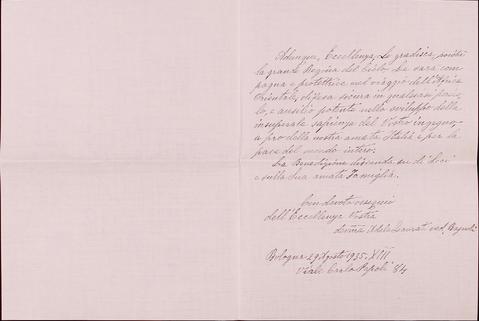 Adunque, Eccellenza, Le gradisca, poichè
la grande Regina del Cielo Le sarà com
pagna e protettrice nel viaggio dell'Africa
Orientale, difesa sicura in qualsiasi perico
lo, e ausilio potente nello sviluppo della
insuperata sapienza del Vostro ingegno,
a pro della nostra amata Italia e per la
pace del mondo intero.
La Benedizione discenda su di Loei
e sulla Sua amata Famiglia.
Con devoto ossequio
dell'Eccellenza Vostra
Adele ved.
Bologna 29 Agosto 1935. XIII
Viale Carlo Pepoli 84